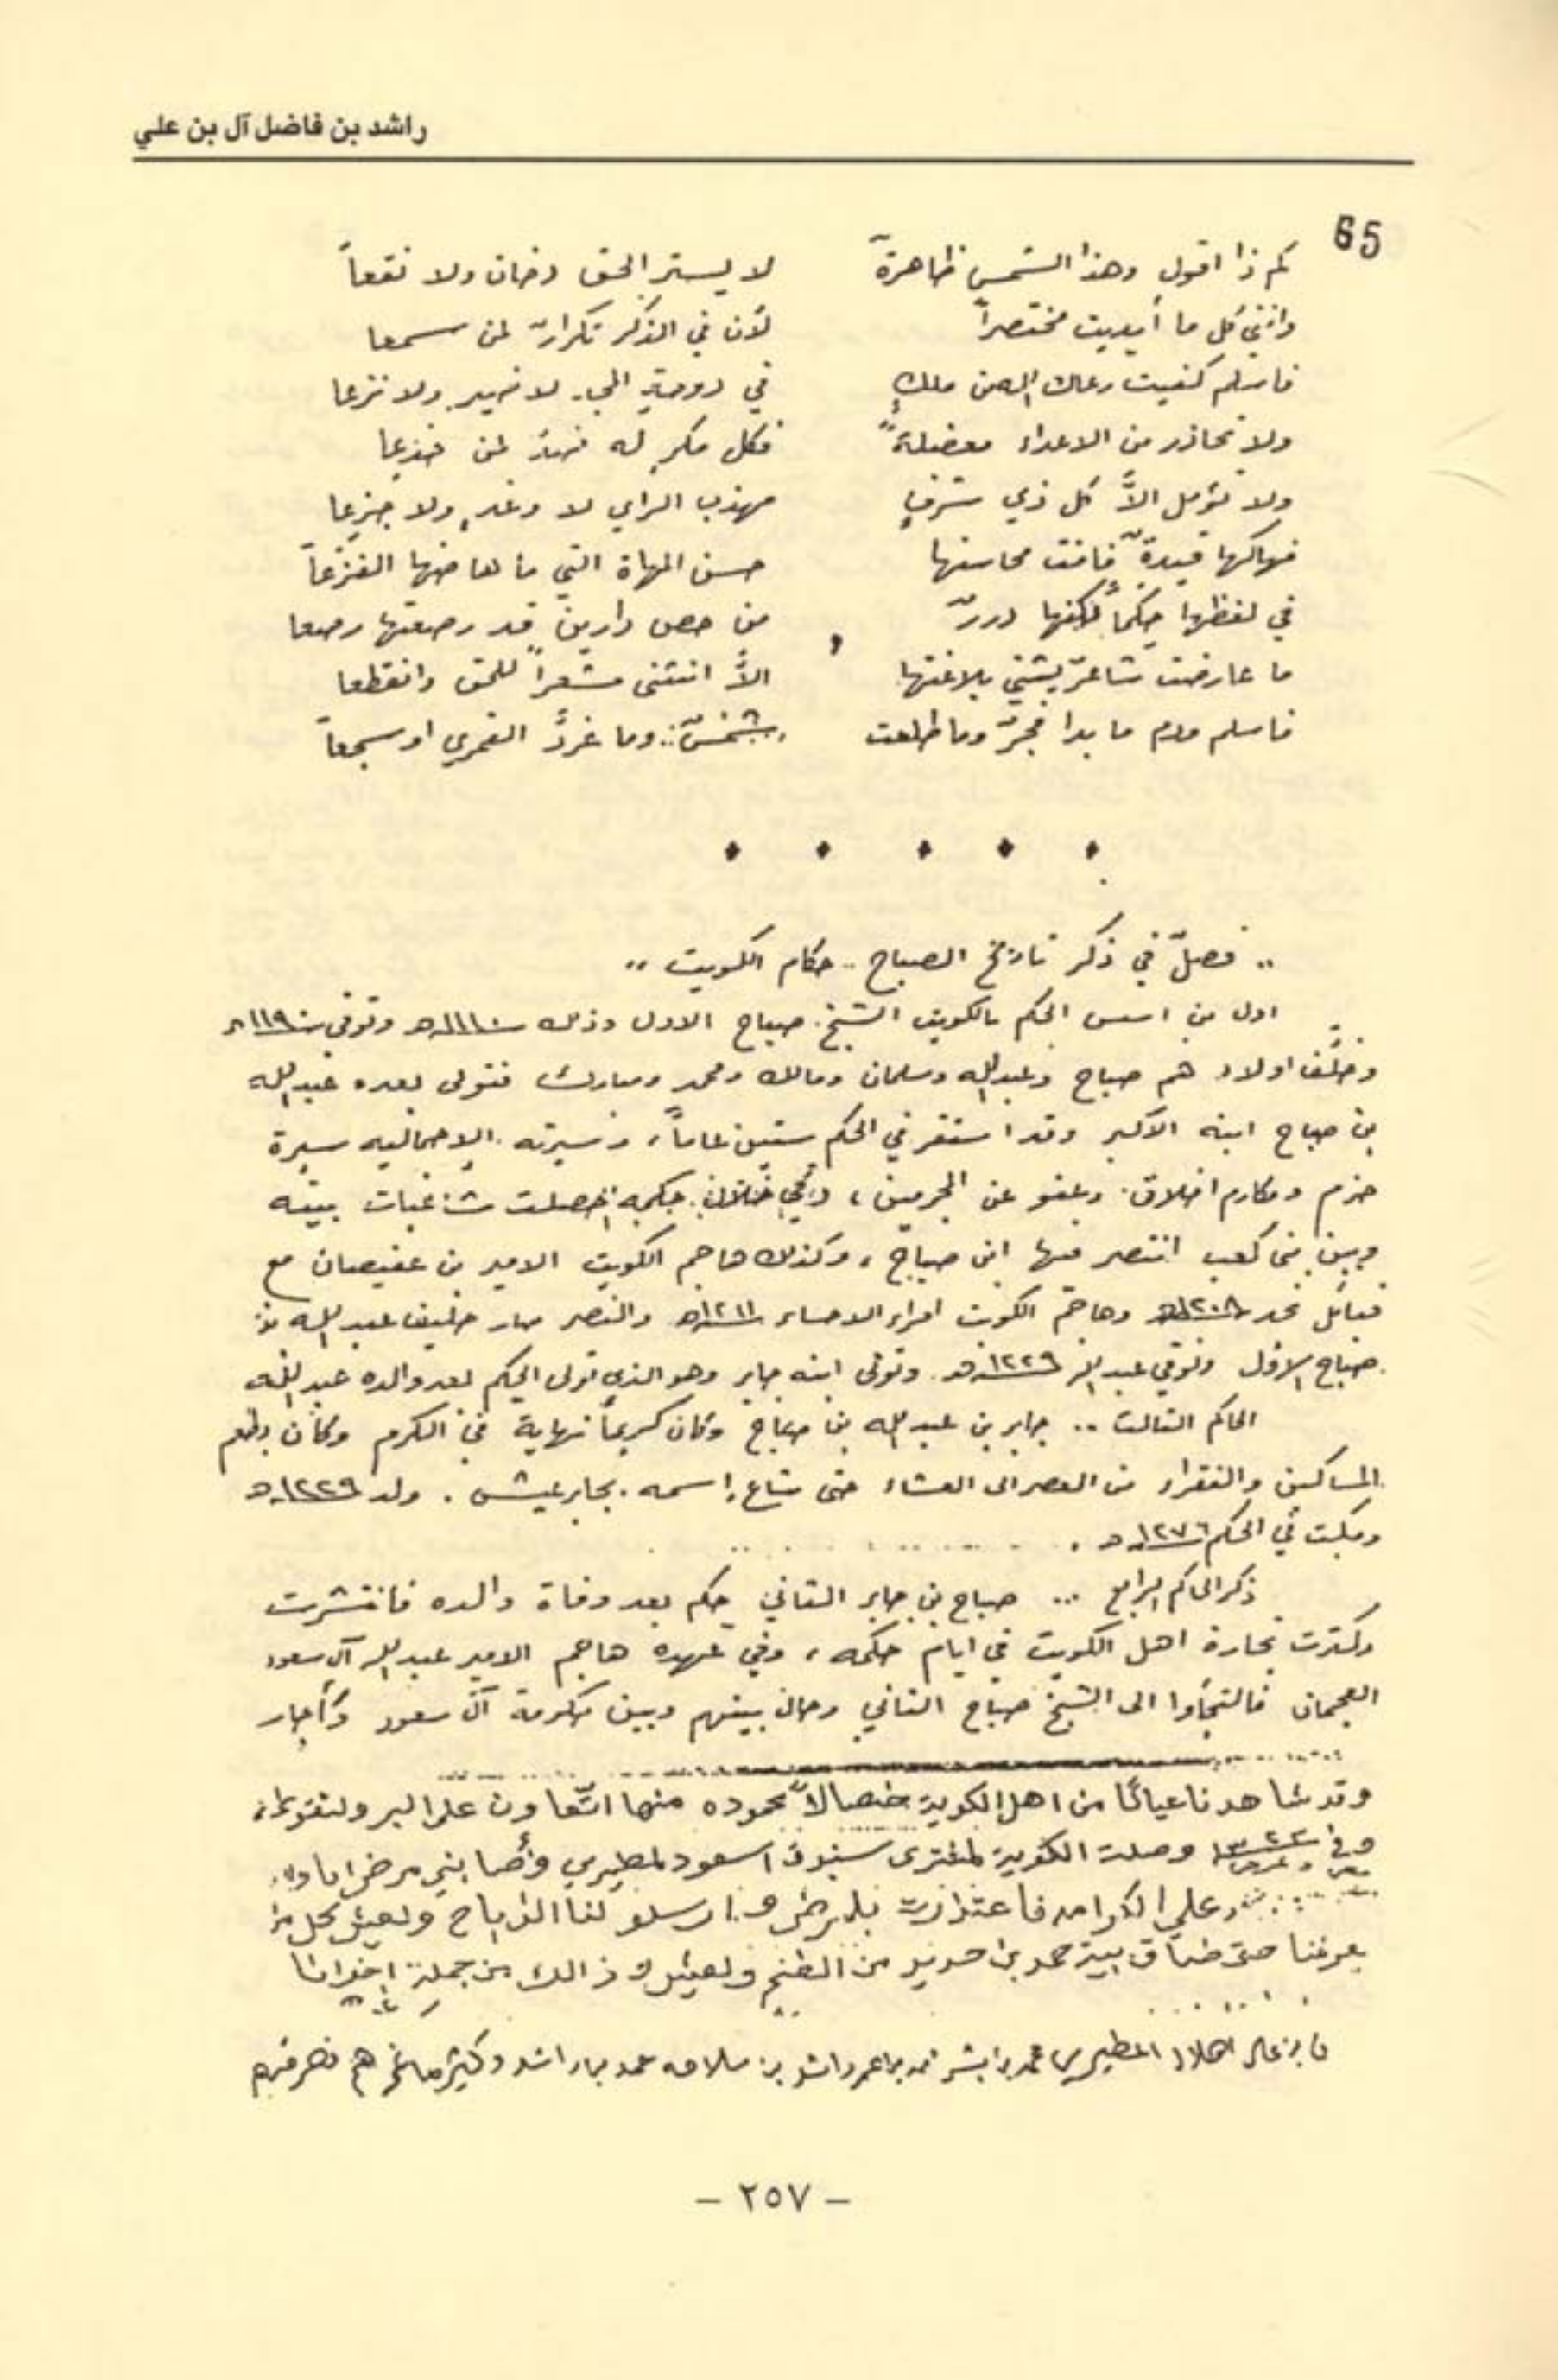 راشد بن فاضل آل بن علي
65
كم ذا اقول وهذا الشمس ظاهرةً لا يستر الحق دخان ولا نقعاً
وانني كل ما أبديت مختصراً لأن في الذكر تكرارٌ لمن سمعا
فاسلم كفيت رعاك الله من ملكٍ في دوحة المجد لا ضير ولا نزعا
ولا تحاذر من الاعداء معضلةً فكل مكرٍ له ضدٌ لمن خدعا
ولا تؤمل الاَّ كل ذي شرفٍ مهذب الراي لا وغدٍ ولا جزعا
فهاكها فاقت محاسنها حسن المهاة التي ما هاضها الفزعاً
في لفظها حِكماً لكنها دررٌ من حص دارين قد رصعتها رصعا
ما عارضت شاعرٌ يثني بلاغتها الاَّ انثنى للحق وانقطعا
فاسلم ودم ما بدا فجرٌ وما طلعت شمسٌ وما غردَّ القمري او سجعاً
.. فصلٌ في ذكر تاريخ الصباح .. حكام الكويت ..
اول من اسس الحكم بالكويت الشيخ صباح الاول وذلك وتوفي
وخلَّف اولاد هم صباح وعبدالله وسلمان ومالك ومحمد ومبارك فتولى بعده عبدالله
بن صباح ابنه الاكبر وقد استقر في الحكم ستين عاماً، وسيرته الاجماليه سيرة
حزم ومكارم اخلاق وعفو عن المجرمين، وفي خلال حكمه حصلت شاغبات بينه
وبين بنى كعب انتصر فيها ابن صباح، وكذلك هاجم الكويت الامير بن عفيصان مع
قبائل نجد ١٢٠٨هـ وهاجم الكويت امراء الاحساء ١٢١١هـ والنصر صار حليف عبدالله بن
صباح الاول وتوفي عبدالله ١٢٢٩هـ وتولى ابنه جابر وهو الذي تولى الحكم بعد والده عبدالله
الحاكم الثالث .. جابر بن عبدالله بن صباح وكان كريماً نهاية في الكرم وكان يطعم
المساكين والفقراء من العصر الى العشاء حتى شاع اسمه بجابر عيش . ولد ١٢٢٩هـ
ومكث في الحكم ١٢٧٦هـ .
ذكر الحاكم الرابع ... صباح بن جابر الثاني حكم بعد وفاة والده فانتشرت
وكثرت تجارة اهل الكويت في ايام حكمه، وفي عهده هاجم الامير عبدالله آل سعود
العجمان فالتجأوا الى الشيخ صباح الثاني وحال بينهم وبين حكومة آل سعود وأجار
وقد شاهدنا عيانًا من اهل الكويت خصالاً محموده منها التعاون على البر والتقوى
وفي ١٣٢٢ وصلت الكويت لمشترى سنبوك اسعود لمطيري وأصابني مرض
علي الكرامه فاعتذرت بلمرض و ارسلو لنا الذباح ولعيش
يعرفنا حتى ضاق بيت حمد بن من الطنم ولعيش و ذالك من جملة اخواننا
المطيري راشد وكثير هم
– ٢٥٧ –